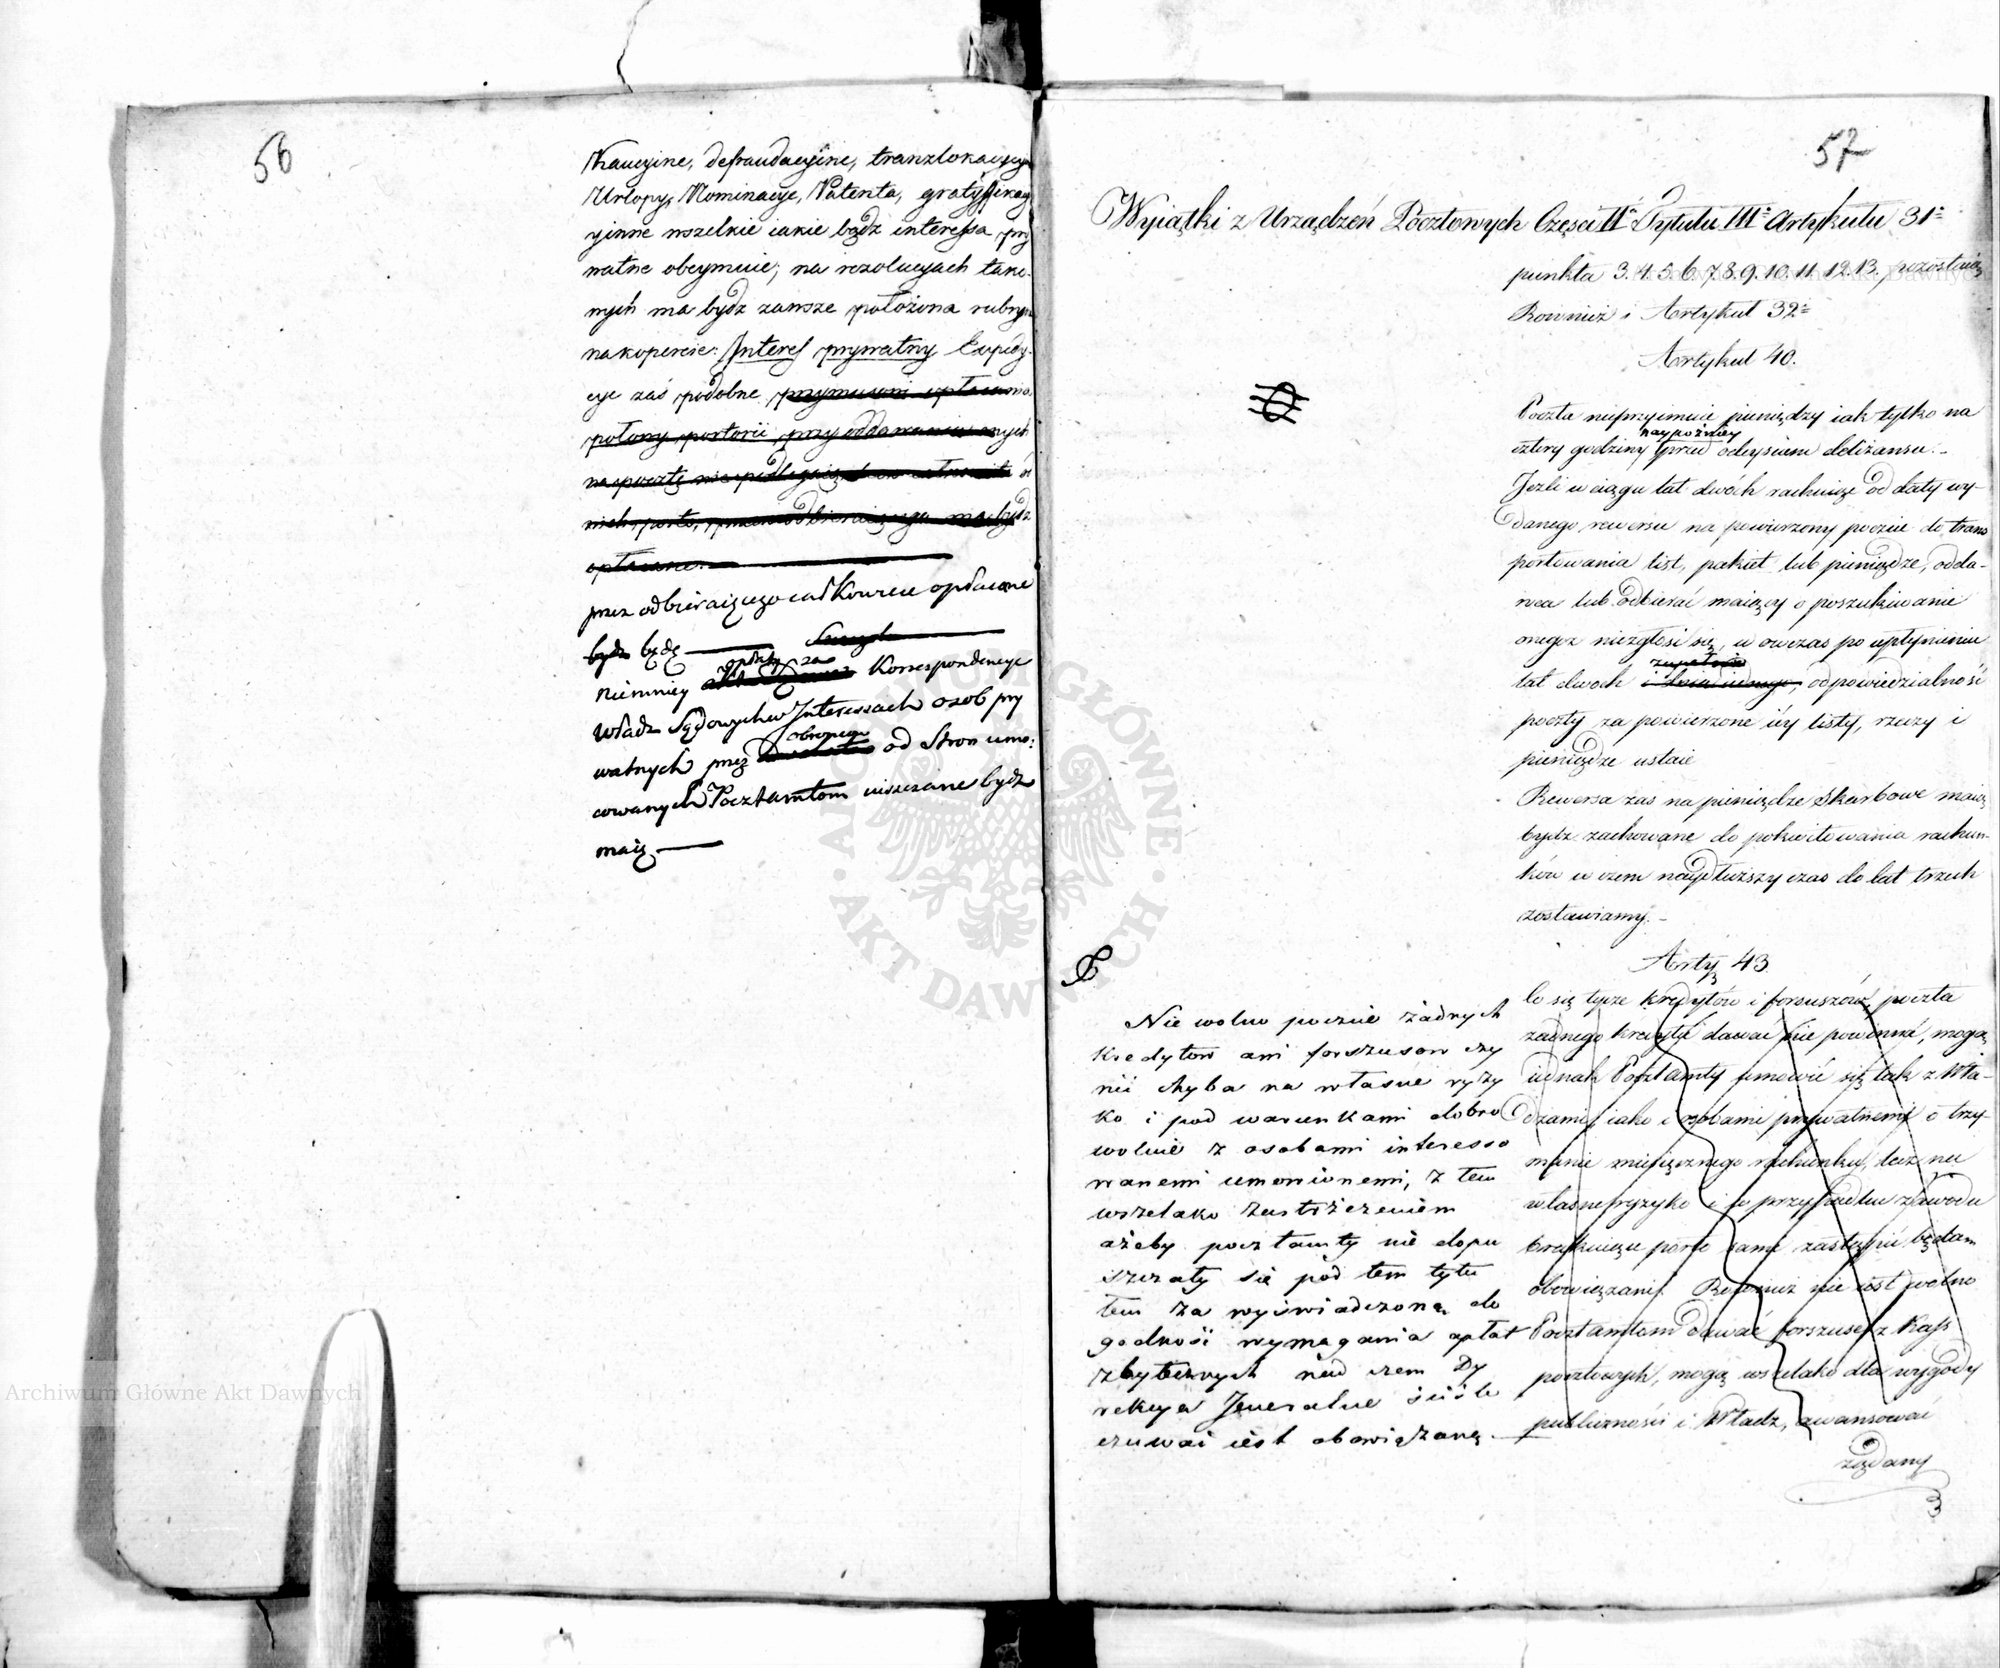 56
Kaucyine, defraudacyine, tranzlokacyyne
Urlopy, Nominacye, Patenta, gratyfikac
yinne wszelkie iakie bądz interessa pry
watne obeymuie; na rezolucyach tako-
wych ma bydz zawsze położona rubryka
na kopercie: Interes prywatny Expedy-
cye zaś podobne przymusowi opłacenia
połowy portorii przy oddawaniu onych
na pocztę nie podlegaią
nich porto, przez odbieraiącego ma bydz
opłacane.
przez odbieraiącego całkowicie opłacane
bydz będę
niemniey opłaty za Korrespondencye
Władz Sądowych w Interessach osob pry
watnych przez obronców od Stron umo-
cowanych Pocztamtom uiszczane bydz
maią
57
Wyiątki z Urządzeń Pocztowych Częsci II Tytułu III Artykułu 31
punkta 3. 4. 5. 6. 7. 8. 9. 10. 11. 12. 13. pozostaią
Rownież i Artykuł 32
Artykuł 40.
Poczta nieprzyimuie pieniędzy iak tylko na
cztery godziny naypóźniey przed odeysciem deliżansu.
Jeżli w ciągu lat dwóch rachuiąc od daty wy-
danego rewersu na powierzony poczcie do trans
portowania list, pakiet lub pieniądze, odda-
wca lub odbierać maiący o poszukiwanie
onegoz niezgłosi się, w owczas po upłynieniu
lat dwoch zupełnie odpowiedzialność
poczty za powierzone iéy listy, rzeczy i
pieniądze ustaie
Rewersa zas na pieniądze Skarbowe maią
bydz zachowane do pokwitowania rachun-
ków w czem naydłuższy czas do lat trzech
zostawiamy.
Arty 43
Co się tycze kredytów i forszusów, poczta
żadnego kredytu dawać nie powinna, mogą
iednak Pocztamty umowić się tak z Wła-
dzami iako i osobami prywatnemi o trzy-
manie miesięcznego rachunku, lecz na
własne ryzyko i w przypadku zawodu
brakuiące porto sami zastąpić będą
obowiązani. Rownież nie iest wolno
Pocztamtom dawać forszusu z Kass
pocztowych, mogą wszelako dla wygody
publiczności i Władz, awansować
żądany
3
Nie wolno poczcie żadnych
kredytow ani forszusow czy
nić chyba na własne ryzy
ko i pod warunkami dobro
wolnie z osobami interesso
wanemi umowionemi, z tem
wszelako zastrzeżeniem
ażeby pocztamty nie dopu
szczały się pod tem tytu
łem za wyświadczoną do
godność wymagania opłat
zbytecznych nad czem Dy
rekcya Jeneralna ściśle
czuwać iest obowiązaną.
Archiwum Główne Akt Dawnych
ARCHIWUM GŁÓWNE AKT DAWNYCH